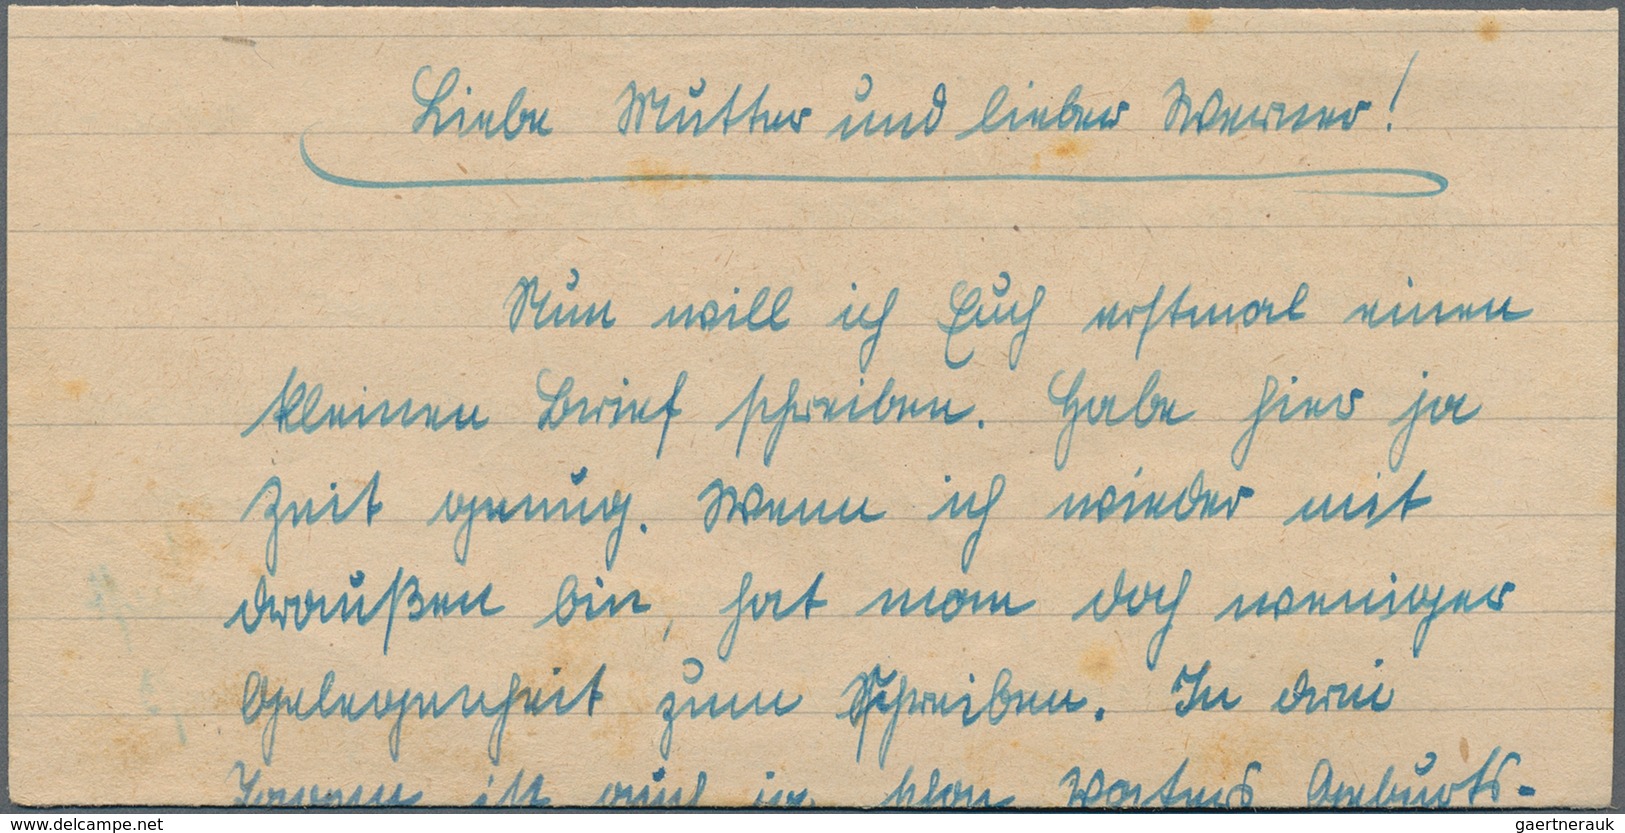 Liebe Mutter und lieber Werner!
Nun will ich Euch erstmal einen
kleinen Brief schreiben. Habe hier ja
Zeit genug. Wenn ich wieder mit
draußen bin, hat man doch weniger
Gelegenheit zum Schreiben. In drei
Tagen ist auch ja schon Vaters Geburts-
gaertnerauk
www.delcampe.net